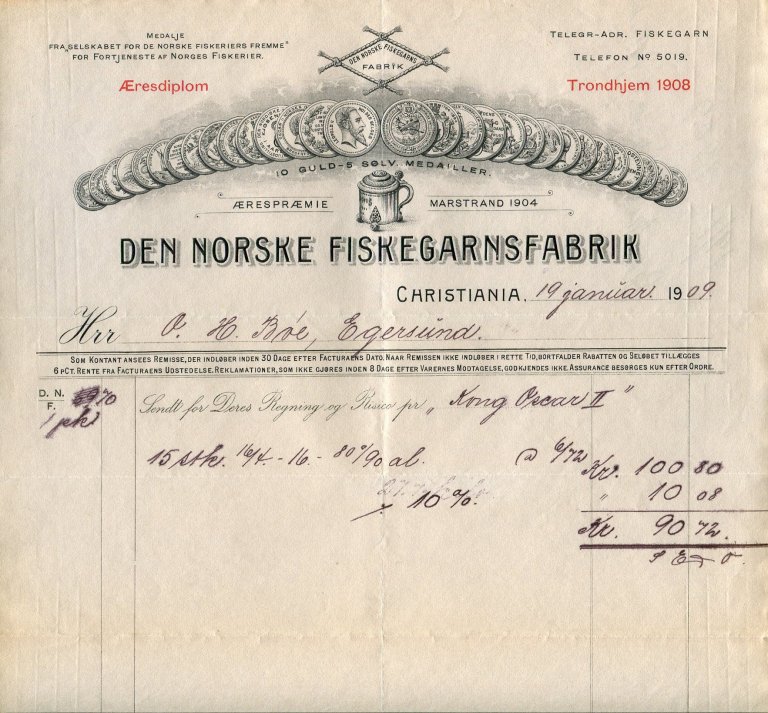 Medalje
fra "Selskabet for de Norske Fiskeriers Fremme"
for Fortjeneste af Norges Fiskerier.
Æresdiplom
DEN NORSKE FISKEGARNS
FABRIK
Telegr-Adr. FISKEGARN
Telefon No 5019.
Trondhjem 1908
10 GULD-5 SØLV. MEDAILLER.
ÆRESPRÆMIE MARSTRAND 1904
DEN NORSKE FISKEGARNSFABRIK
Christiania, 19 januar. 1909.
Hrr O. H. Bøe, Egersund.
Som Kontant ansees Remisse, der indløber inden 30 Dage efter Facturaens Dato. Naar Remissen ikke indløber i rette Tid, bortfalder Rabatten og Seløbet tillægges
6 pCt. Rente fra Facturaens Udstedelse. Reklamationer, som ikke gjøres inden 8 Dage efter Varernes Modtagelse, godkjendes ikke. Assurance besørges kun efter Ordre.
D. N.
F.
1 pk
Sendt for Deres Regning og Risico pr „Kong Oscar II"
15 stk. 16/4 - 16 - 80 0/90 al. @ 6/72 Kr. 100 80
÷ 10 %. " 10 08
Kr. 90 72.
S E & O.